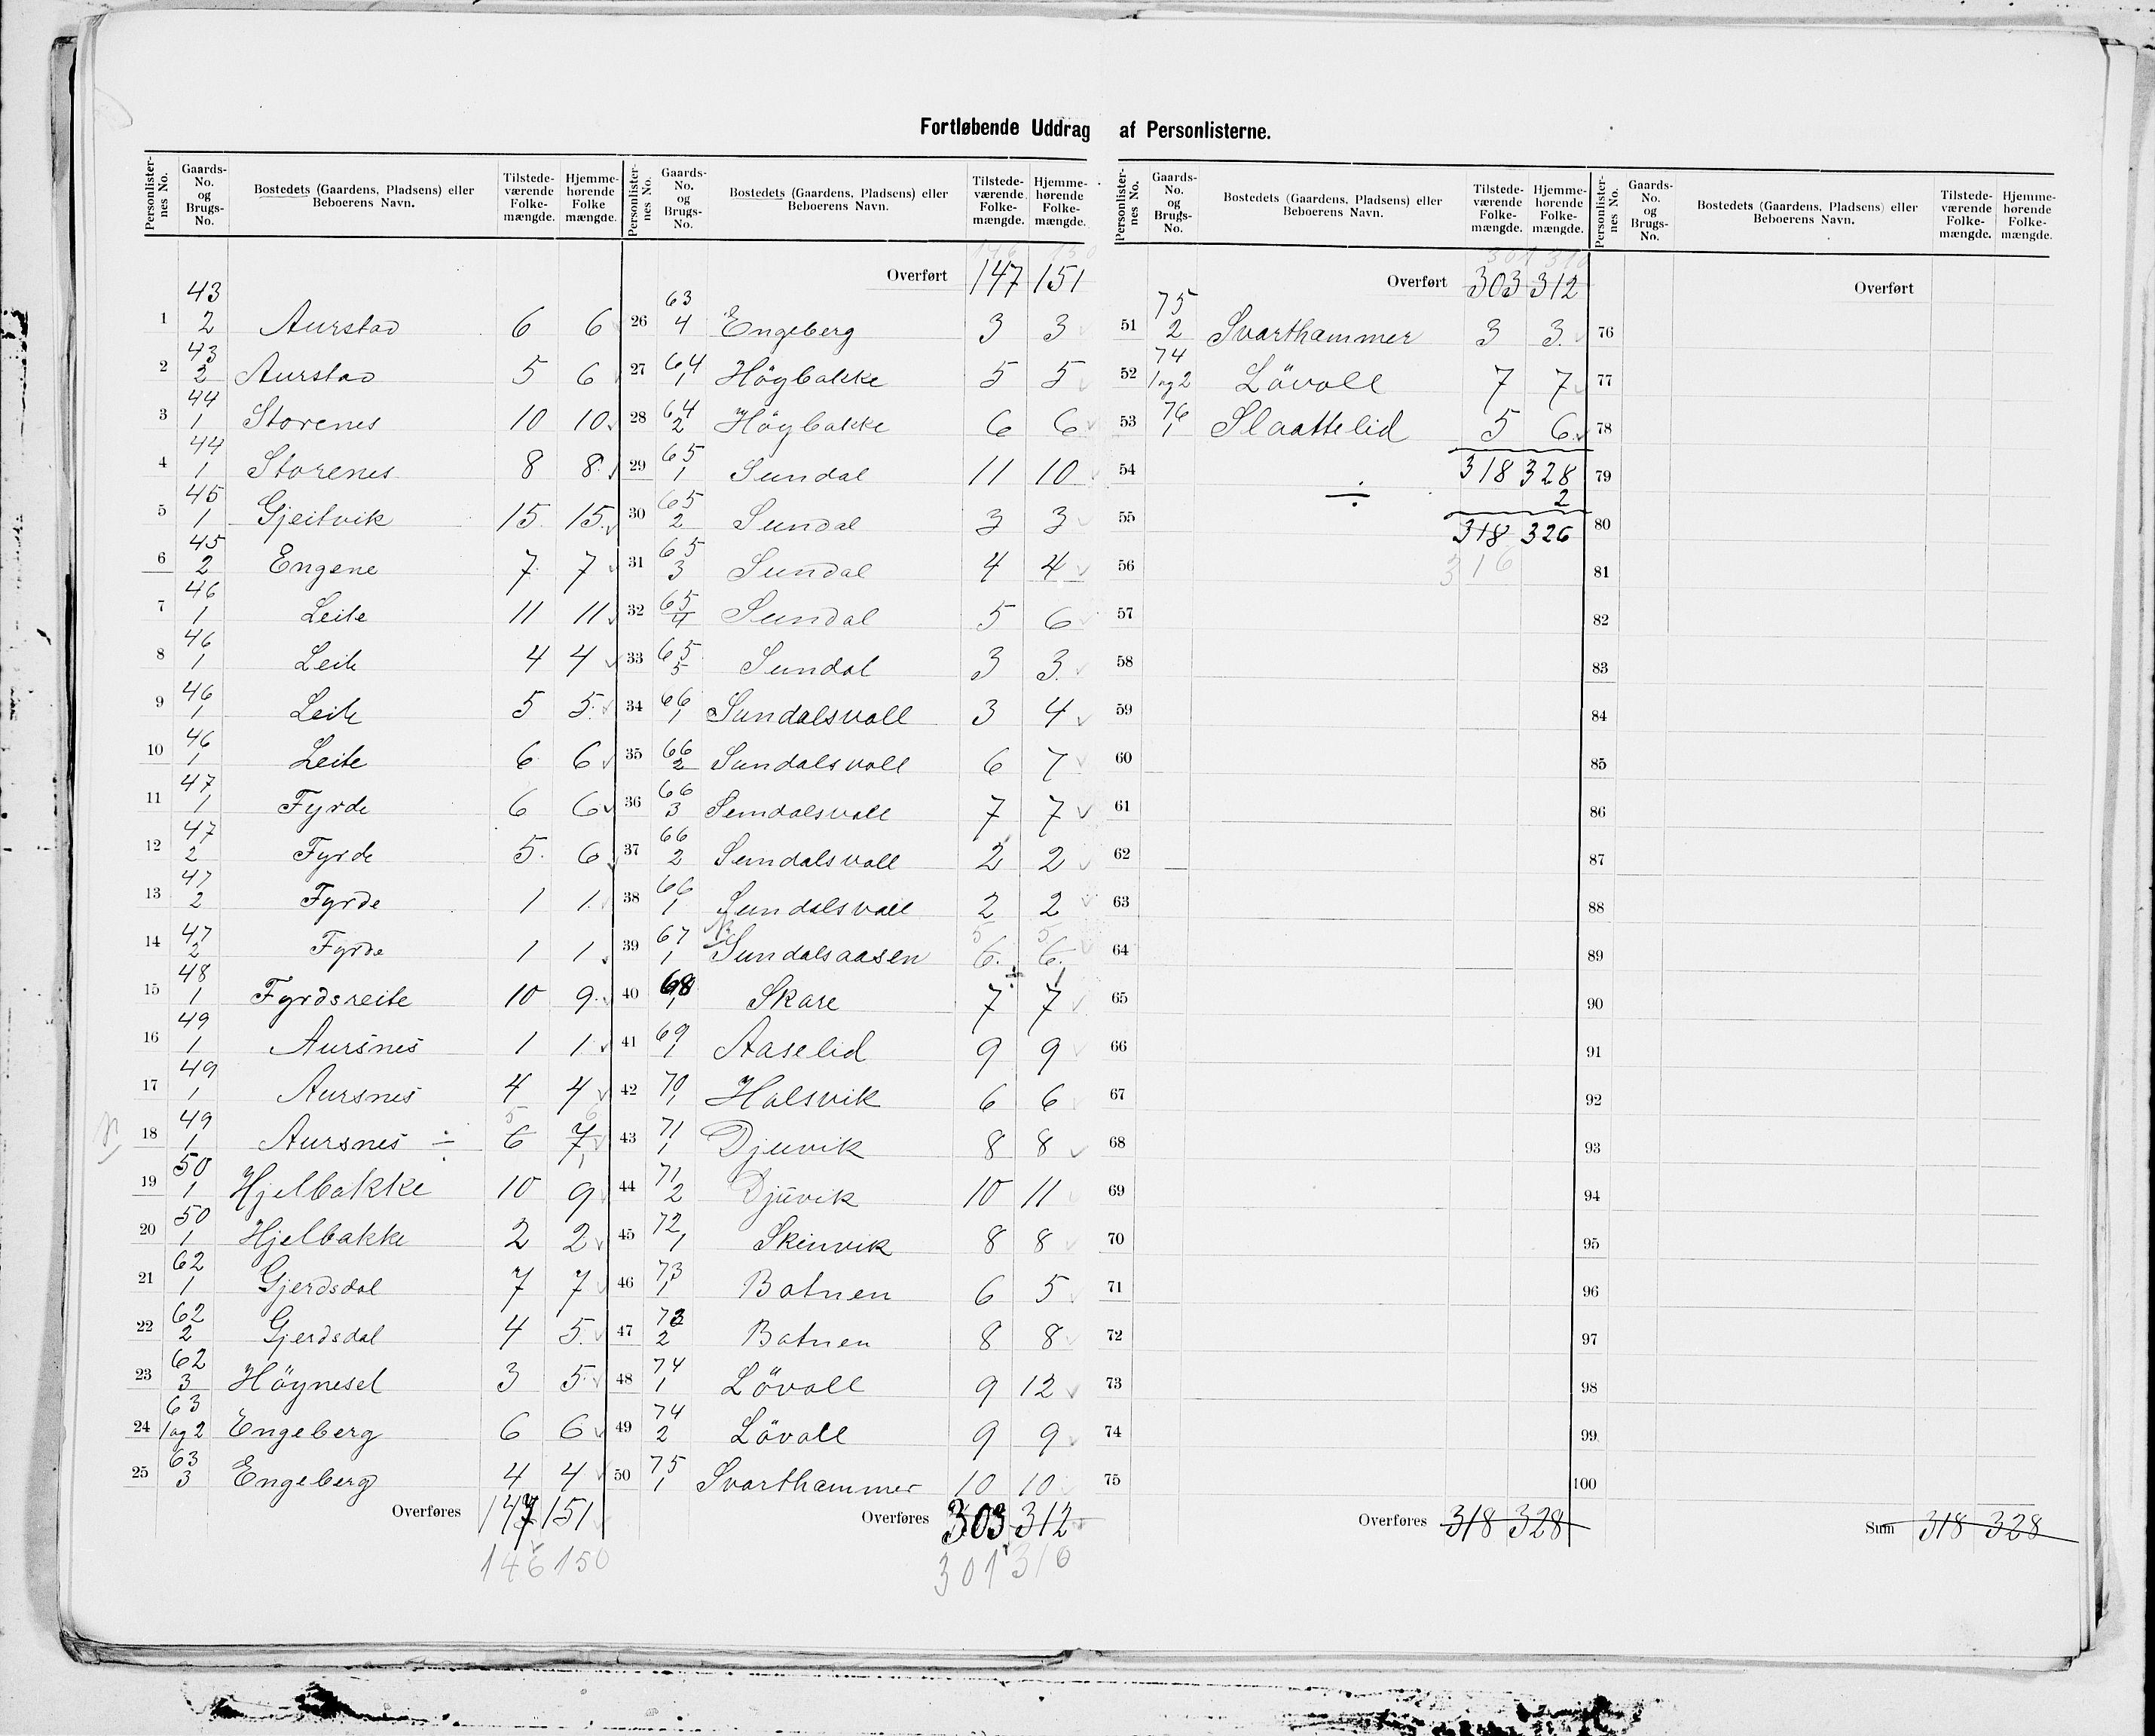 Fortløbende Uddrag af Personlisterne.
Personlister-nes No. Gaards-No. og Brugs-No. Bostedets (Gaardens, Pladsens) eller Beboerens Navn. Tilstede-værende Folke-mængde. Hjemme-hørende Folke mængde.
1 43 2 Aurstad 6 6
2 43 2 Aurstad 5 6
3 44 1 Storenes 10 10
4 44 1 Storenes 8 8
5 45 1 Gjeitvik 15 15
6 45 2 Engene 7 7
7 46 1 Leite 11 11
8 46 1 Leite 4 4
9 46 1 Leite 5 5
10 46 1 Leite 6 6
11 47 1 Fyrde 6 6
12 47 2 Fyrde 5 6
13 47 2 Fyrde 1 1
14 47 2 Fyrde 1 1
15 48 1 Fyrdsreite 10 9
16 49 1 Aursnes 1 1
17 49 1 Aursnes 4 4
5 6
18 49 1 Aursnes ÷ 6 7
19 50 1 Hjelbakke 10 9
20 50 1 Hjelbakke 2 2
21 62 1 Gjerdsdal 7 7
22 62 2 Gjerdsdal 4 5
23 62 3 Höynesel 3 5
24 63 1 og 2 Engeberg 6 6
25 63 3 Engeberg 4 4
Overføres 147 151
146 150
Personlister-nes No. Gaards-No. og Brugs-No. Bostedets (Gaardens, Pladsens) eller Beboerens Navn. Tilstede-værende Folke-mængde. Hjemme-hørende Folke-mængde.
146 150
Overført 147 151
26 63 4 Engeberg 3 3
27 64 1 Höybakke 5 5
28 64 2 Höybakke 6 6
29 65 1 Sundal 11 10
30 65 2 Sundal 3 3
31 65 3 Sundal 4 4
32 65 4 Sundal 5 6
33 65 5 Sundal 3 3
34 66 1 Sundalsvoll 3 4
35 66 2 Sundalsvoll 6 7
36 66 3 Sundalsvoll 7 7
37 66 2 Sundalsvoll 2 2
38 66 1 Sundalsvoll 2 2
5 5
39 67 1 Sundalsaasen 6 6
40 68 1 Skare 7 7
41 69 1 Aaselid 9 9
42 70 1 Halsvik 6 6
43 71 1 Djuvik 8 8
44 71 2 Djuvik 10 11
45 72 1 Skinvik 8 8
46 73 1 Botnen 6 5
47 73 2 Botnen 8 8
48 74 1 Lövoll 9 12
49 74 2 Lövoll 9 9
50 75 1 Svarthammer 10 10
Overføres 303 312
301 310
Personlister-nes No. Gaards-No. og Brugs-No. Bostedets (Gaardens, Pladsens) eller Beboerens Navn. Tilstede-værende Folke-mængde. Hjemme-hørende Folke-mængde.
301 310
Overført 303 312
51 75 2 Svarthammer 3 3
52 74 1 og 2 Lövoll 7 7
53 76 1 Slaattelid 5 6
54 318 328
÷ 2
55 318 326
56 316
57
58
59
60
61
62
63
64
65
66
67
68
69
70
71
72
73
74
75
Overføres 318 328
Personlister-nes No. Gaards-No. og Brugs-No. Bostedets (Gaardens, Pladsens) eller Beboerens Navn. Tilstede-værende Folke-mængde. Hjemme-hørende Folke-mængde.
Overført
76
77
78
79
80
81
82
83
84
85
86
87
88
89
90
91
92
93
94
95
96
97
98
99
100
Sum 318 328